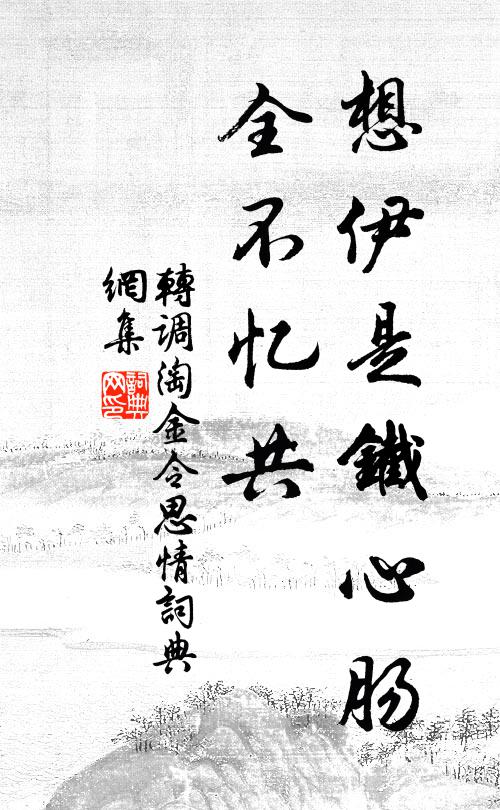 想伊是鐵心肠
全不忆共
轉调淘金令思情詞典
網集
詞典
网印